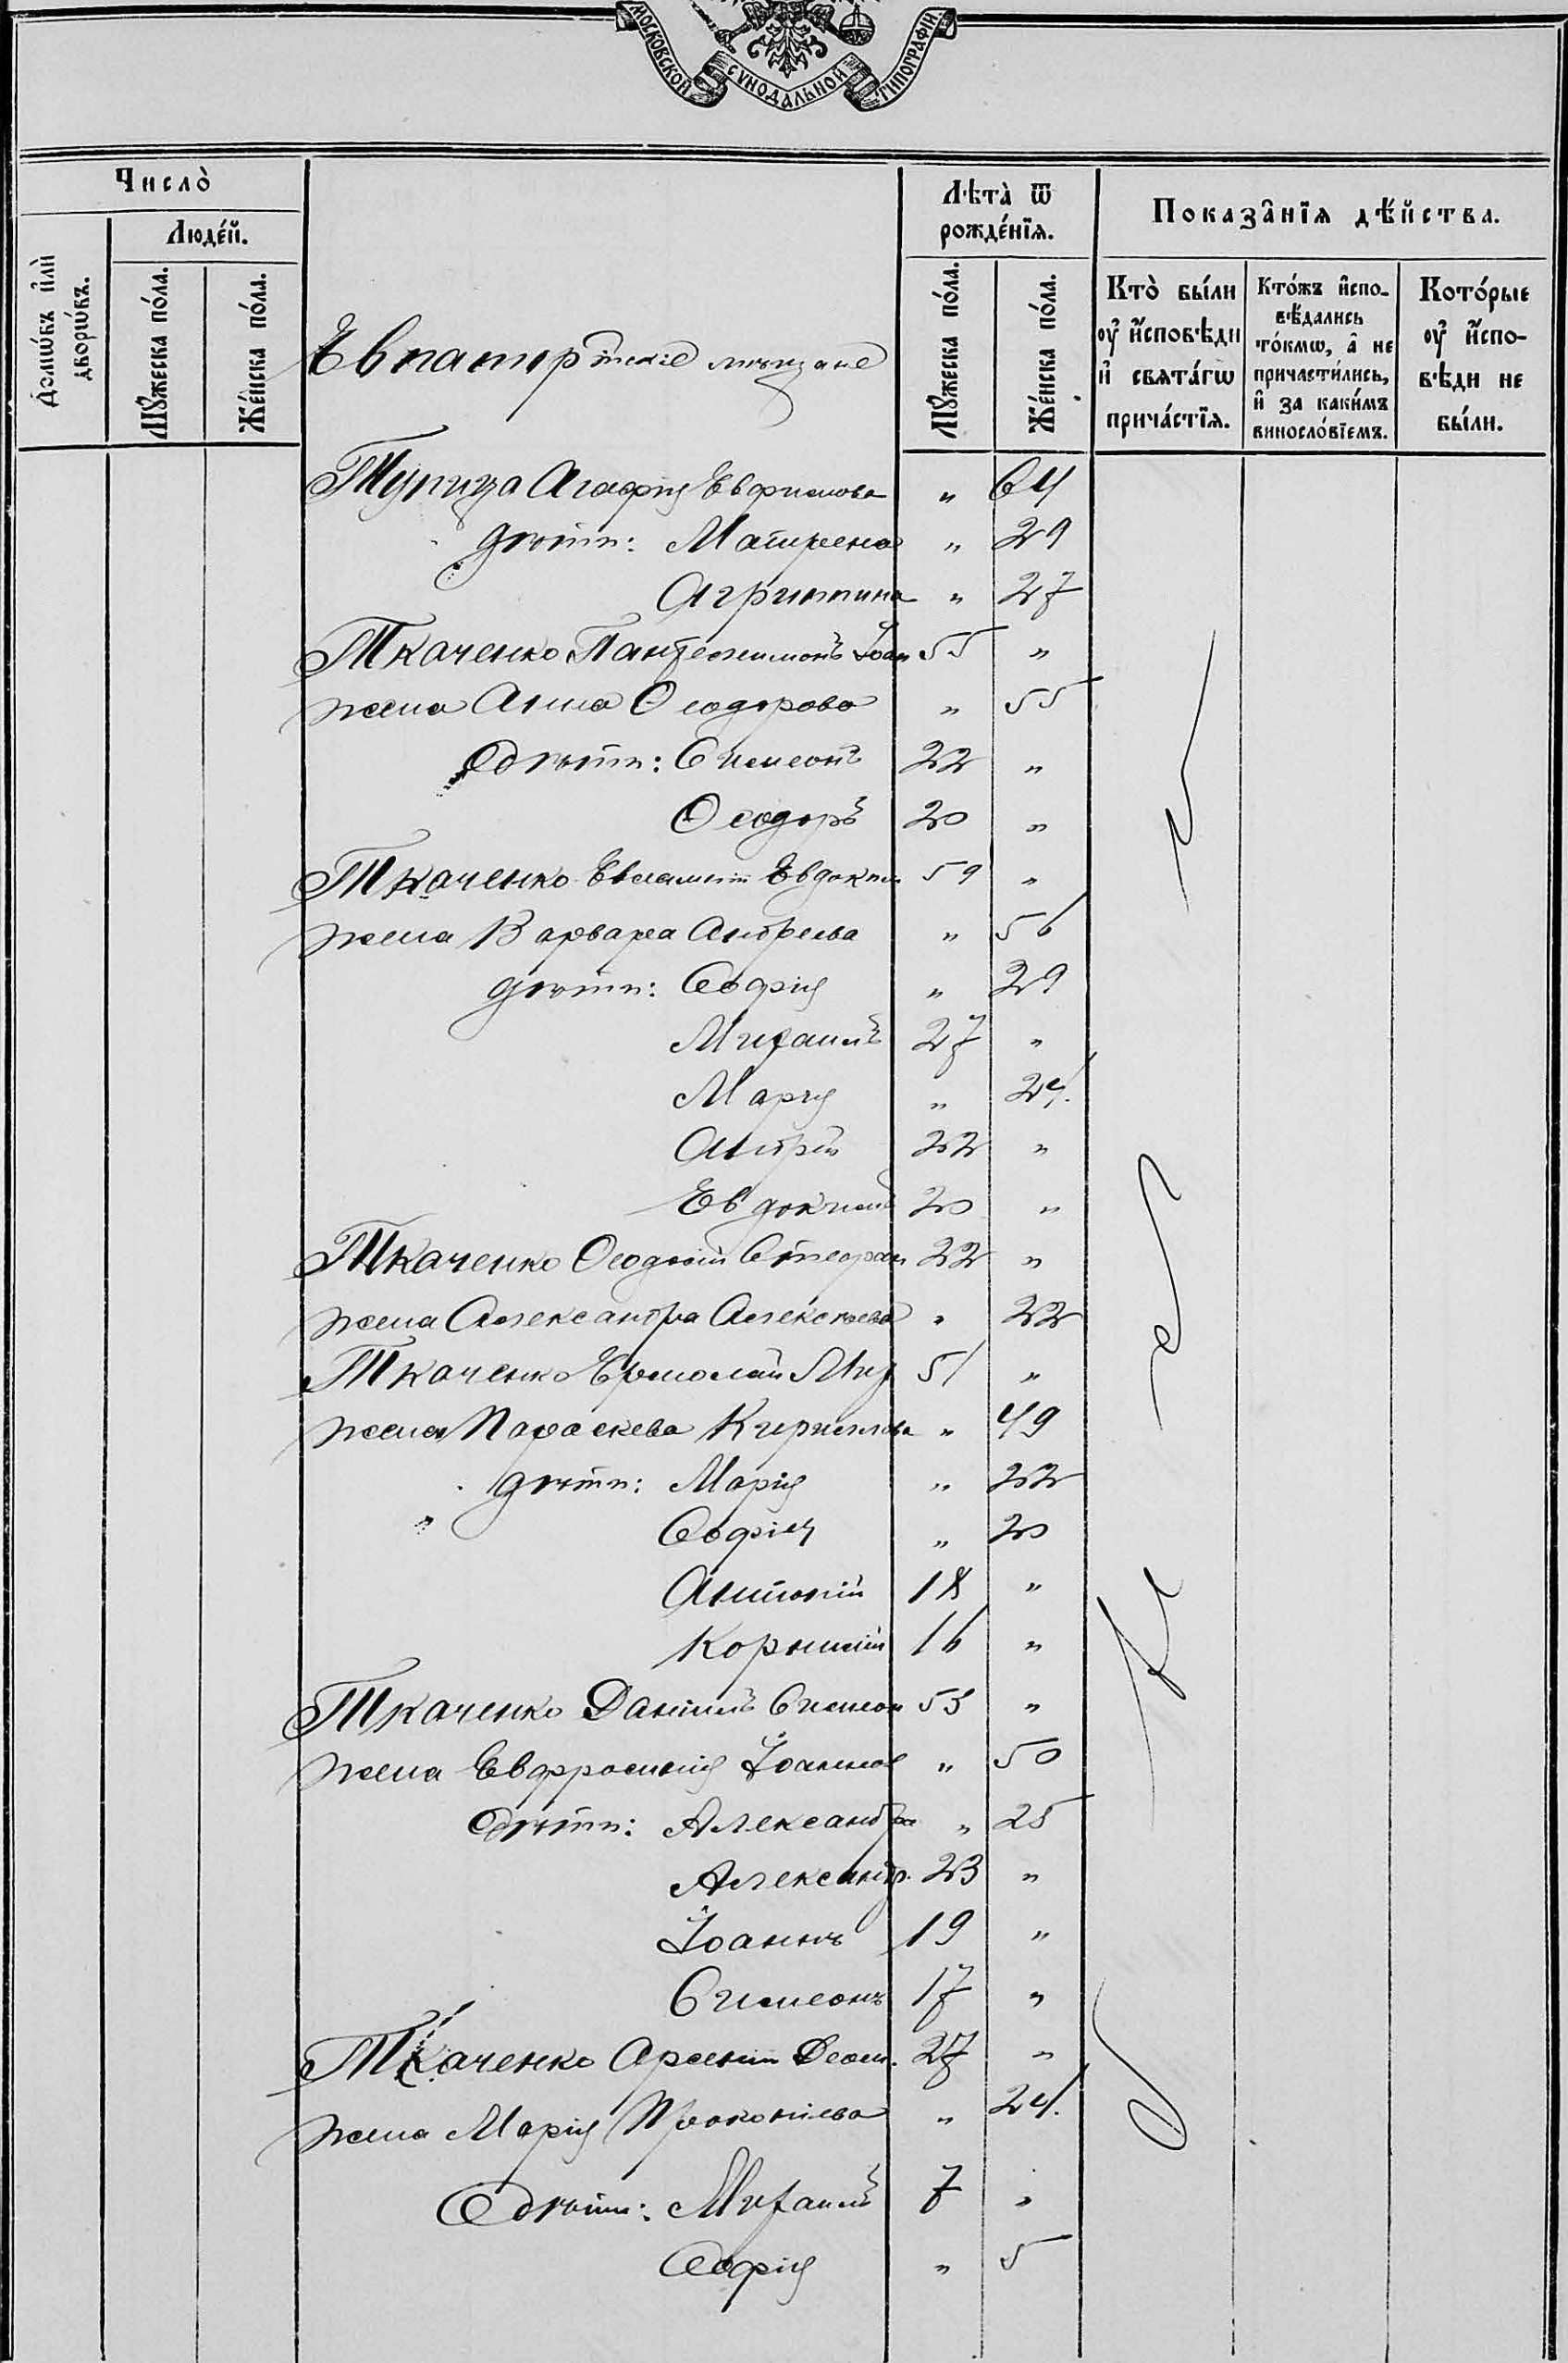 МОСКОВСКОЙ СУНОДАЛЬНОЙ ТИПОГРАФІИ
Число̀
Людє́й.
Домѡ́въ и҆лѝ дворѡ́въ.
Мꙋ́жеска по́ла.
Же́нска по́ла.
Лѣта̀ ѿ рожде́нїѧ.
Мꙋ́жеска по́ла.
Же́нска по́ла.
Показа̑нїѧ дѣ́йства.
Кто̀ бы́ли ᲂу҆ и҆́сповѣди и҆ свѧта́гѡ прича́стїѧ.
Кто́жъ и҆спо-вѣ́дались то́кмѡ, а҆ не причасти́лись, и҆ за каки́мъ виносло́вїемъ.
Кото́рые ᲂу҆ и҆́спо-вѣди не бы́ли.
Евпаторійскіе мѣщане
Агафія Евфимова " 64
дѣти: Матрена " 29
Агриппина " 27
Ткаченко Пантелеимонъ Іоан 55 "
жена Анна Ѳеодорова " 55
дѣти: Симеонъ 22 "
Ѳеодоръ 20 "
Ткаченко Евлампій Евдоким 59 "
жена Варвара Андреева " 56
дѣти: Софія " 29
Михаилъ 27 "
Марія " 24.
Андрей 22 "
Евдокимъ 20 "
Ткаченко Ѳеодосій Стефан 22 "
жена Александра Алексѣева " 22
Ткаченко Ермолай Мих 51 "
жена Параскева Кириллова " 49
дѣти: Марія " 22
Софія " 20
Антоній 18 "
Корнилій 16 "
Ткаченко Даніилъ Симеон 53 "
жена Евфросинія Іоаннов " 50
дѣти: Александра " 25
Александр. 23 "
Іоаннъ 19 "
Симеонъ 17 "
Ткаченко Арсеній Деом. 27 "
жена Марія Прокопіева " 24.
дѣти: Михаилъ 7 "
Софія " 5